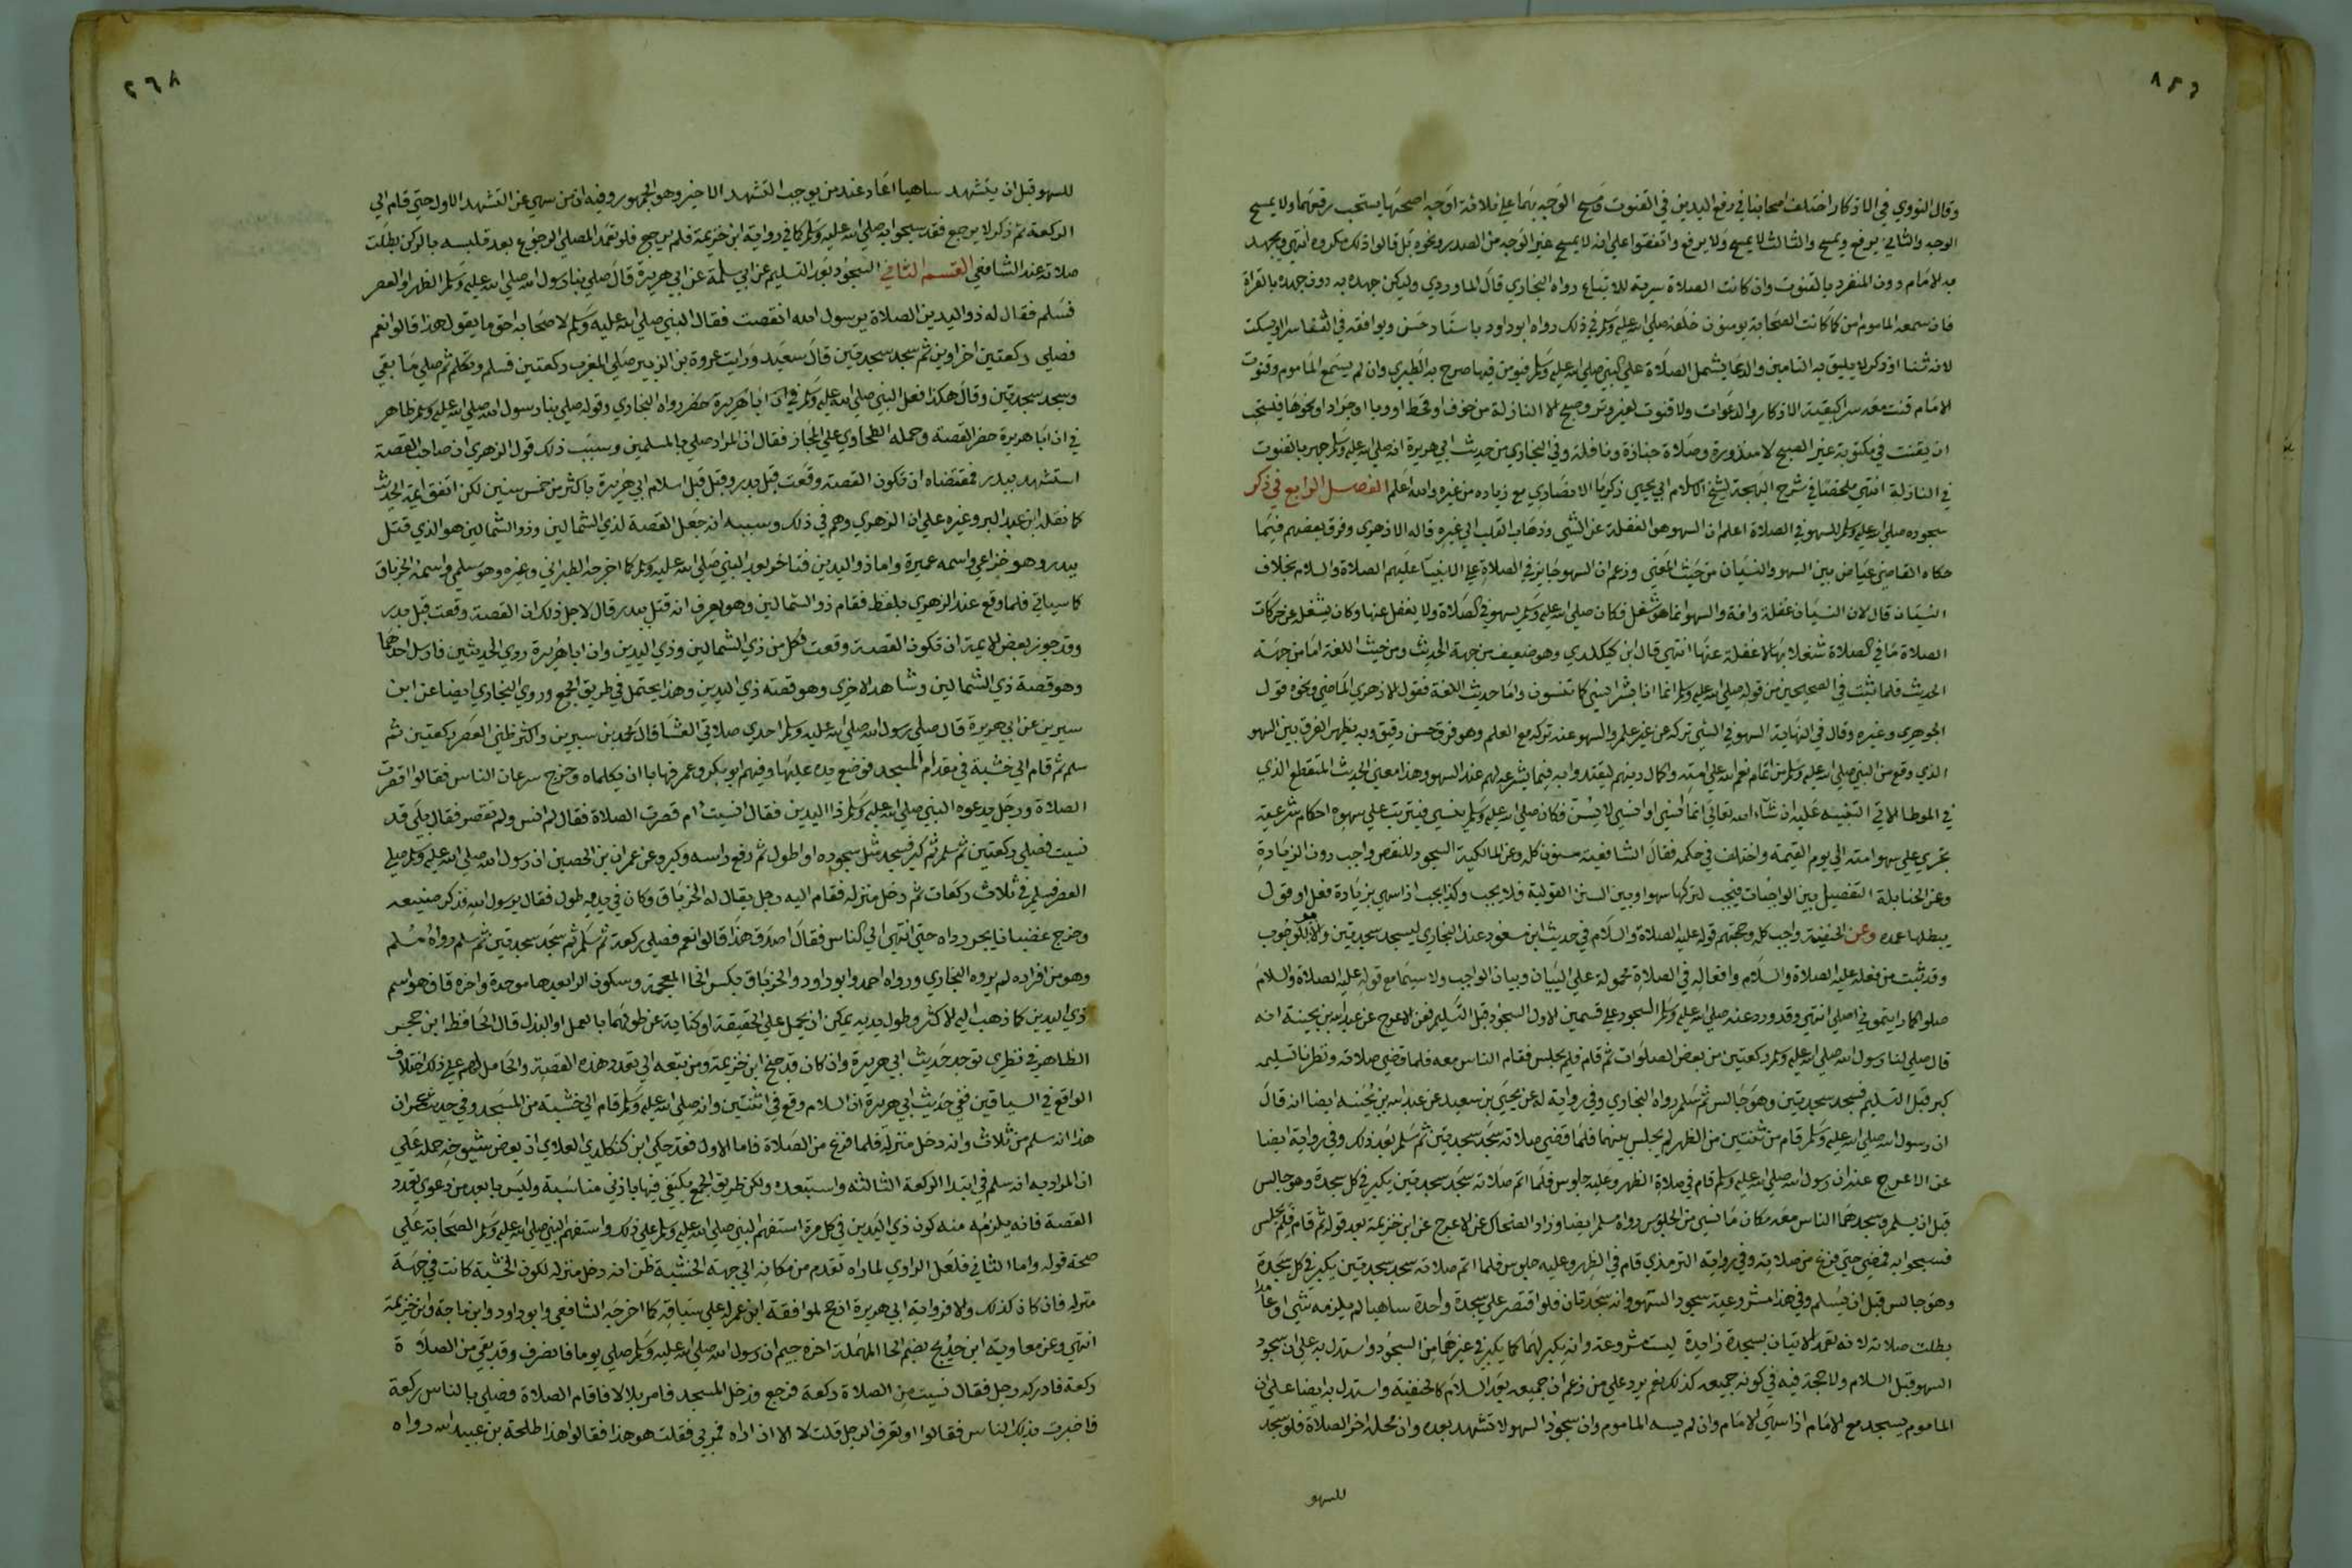 وقال النووي في الاذكار اختلف اصحابنا في رفع اليدين في القنوت ومسح الوجه بهما على ثلاثة اوجه اصحها يستحب رفعهما ولا يمسح
الوجه والثاني يرفع ويمسح والثالث لا يمسح ولا يرفع واتفقوا على انه لا يمسح غير الوجه من الصدر ونحوه بل قالوا ذلك مكروه انتهي ويجهر
به الامام دون المنفرد بالقنوت وان كانت الصلاة سرية للاتباع رواه البخاري قال الماوردي وليكن جهره به دون جهره بالقراة
فان سمعه الماموم امن كما كانت الصحابة يومنون خلفه صلى الله عليه وسلم في ذلك رواه ابو داود باسناد حسن ويوافقه في الثنا سرا او يسكت
لانه ثنا او ذكر لا يليق به التامين والدعا يشمل الصلاة على النبي صلى الله عليه وسلم فيومن فيها صرح به الطبري وان لم يسمع الماموم وقنوت
الامام قنت معه سرا كبقية الاذكار والدعوات ولا قنوت لغير وتر وصبح الا النازلة من خوف او قحط او وبا او جراد او نحوها فيستحب
ان يقنت في مكتوبة غير الصبح لا منذورة وصلاة جنازة ونافلة وفي البخاري من حديث ابي هريرة انه صلى الله عليه وسلم جهر بالقنوت
في النازلة انتهي ملخصا في شرح البهجة لشيخ الاسلام ابي يحيى زكريا الانصاري مع زياده من غيره والله اعلم الفصل الرابع في ذكر
سجوده صلى الله عليه وسلم للسهو في الصلاة اعلم ان السهو هو الغفلة عن الشي وذهاب القلب الى غيره قاله الازهري وفرق بعضهم فيما
حكاه القاضي عياض بين السهو والنسيان من حيث المعني وزعم ان السهو جائز في الصلاة على الانبيآ عليهم الصلاة والسلام بخلاف
النسيان قال لان النسيان غفلة وافة والسهو انما هو شغل فكان صلى الله عليه وسلم يسهو في الصلاة ولا يغفل عنها وكان يشغله عن حركات
الصلاة ما في الصلاة شغلا بها لا غفلة عنها انتهي قال ابن كيكلدي وهو ضعيف من جهة الحديث ومن حيث اللغة اما من جهة
الحديث فلما ثبت في الصحيحين من قوله صلى الله عليه وسلم انما انا بشر انسي كما تنسون واما حديث اللغة فقول الازهري الماضي ونحوه قول
الجوهري وغيره وقال في النهاية السهو في الشي تركه عن غير علم والسهو عنه تركه مع العلم وهو فرق حسن دقيق وبه يظهر الفرق بين السهو
الذي وقع من النبي صلى الله عليه وسلم من اتمام نعم الله على امته واكمال دينهم ليقتدوا به فيما يشرعه لهم عند السهو وهذا معني الحديث المنقطع الذي
في الموطا الاتي التنبيه عليه ان شآء الله تعالى انما انسي او انسى لاسن فكان صلى الله عليه وسلم ينسى فيترتب على سهوه احكام شرعية
تجري على سهو امته الى يوم القيمة واختلف في حكمه فقال الشافعية مسنون كله وعن المالكية السجود للنقص واجب دون الزيادة
وعن الحنابلة التفصيل بين الواجبات فيجب لتركها سهوا وبين السنن القولية فلا يجب وكذا يجب اذا سهي بزيادة فعل او قول
يبطلها عمده وعن الحنفية واجب كله وحجتهم قوله عليه الصلاة والسلام في حديث ابن مسعود عند البخاري ليسجد سجدتين والامر للوجوب
وقد ثبت من فعله عليه الصلاة والسلام وافعاله في الصلاة محمولة على البيان وبيان الواجب ولا سيما مع قوله عليه الصلاة والسلام
صلوا كما رايتموني اصلي انتهي وقد ورد عنه صلى الله عليه وسلم السجود على قسمين الاول السجود قبل التسليم فعن الاعرج عن عبد الله بن بحينة انه
قال صلى لنا رسول الله صلى الله عليه وسلم ركعتين من بعض الصلوات ثم قام فلم يجلس فقام الناس معه فلما قضي صلاته ونظرنا تسليمه
كبر قبل التسليم فسجد سجدتين وهو جالس ثم سلم رواه البخاري وفي رواية له عن يحيى بن سعيد عن عبد الله بن بحينة ايضا انه قال
ان رسول الله صلى الله عليه وسلم قام من ثنتين من الظهر لم يجلس بينهما فلما قضي صلاته سجد سجدتين ثم سلم بعد ذلك وفي رواية ايضا
عن الاعرج عنه ان رسول الله صلى الله عليه وسلم قام في صلاة الظهر وعليه جلوس فلما اتم صلاته سجد سجدتين يكبر في كل سجدة وهو جالس
قبل ان يسلم وسجدهما الناس معه مكان ما نسي من الجلوس رواه مسلم ايضا وزاد الضحاك عن الاعرج عن ابن خزيمة بعد قوله ثم قام فلم يجلس
فسبحوا به فمضى حتى فرغ من صلاته وفي رواية الترمذي قام في الظهر وعليه جلوس فلما اتم صلاته سجد سجدتين يكبر في كل سجدة
وهو جالس قبل ان يسلم وفي هذا مشروعية سجود السهو وانه سجدتان فلو اقتصر على سجدة واحدة ساهيا لم يلزمه شي او عامدا
بطلت صلاته لانه تعمد الاتيان بسجدة زايدة ليست مشروعة وانه يكبر لهما كما يكبر في غيرهما من السجود واستدل به على ان سجود
السهو قبل السلام ولا حجة فيه في كونه جميعه كذلك نعم يرد على من زعم ان جميعه بعد السلام كالحنفية واستدل به ايضا على ان
الماموم يسجد مع الامام اذا سهي الامام وان لم يسه الماموم وان سجود السهو لا تشهد بعده وان محله اخر الصلاة فلو سجد
للسهو
للسهو قبل ان يتشهد ساهيا اعاد عند من يوجب التشهد الاخير وهو الجمهور وفيه ان من سهي عن التشهد الاول حتى قام الي
الركعة ثم ذكر لا يرجع فقد سبحوا به صلى الله عليه وسلم كما في رواية ابن خزيمة فلم يرجع فلو تعمد المصلي الرجوع بعد تلبسه بالركن بطلت
صلاته عند الشافعي القسم الثاني السجود بعد التسليم عن ابي سلمة عن ابي هريرة قال صلى بنا رسول الله صلى الله عليه وسلم الظهر او العصر
فسلم فقال له ذو اليدين الصلاة يرسول الله انقصت فقال النبي صلى الله عليه وسلم لاصحابه احق ما يقول هذا قالوا نعم
فصلى ركعتين اخراوين ثم سجد سجدتين قال سعيد ورايت عروة بن الزبير صلى المغرب ركعتين فسلم وتكلم ثم صلى ما بقي
وسجد سجدتين وقال هكذا فعل النبي صلى الله عليه وسلم في ان ابا هريرة حضر رواه البخاري وقوله صلى بنا رسول الله صلى الله عليه وسلم ظاهر
في ان ابا هريرة حضر القصة وحمله الطحاوي على المجاز فقال ان المراد صلى بالمسلمين وسبب ذلك قول الزهري ان صاحب القصة
استشهد ببدر فمقتضاه ان تكون القصة وقعت قبل بدر وقبل قبل اسلام ابي هريرة باكثر من خمس سنين لكن اتفق ايمة الحديث
كما نقله ابن عبد البر وغيره على ان الزهري وهم في ذلك وسببه انه جعل القصة لذي الشمالين وذو الشمالين هو الذي قتل
ببدر وهو خزاعي واسمه عميرة واما ذو اليدين فتاخر بعد النبي صلى الله عليه وسلم كما اخرجه الطبراني وغيره وهو سلمي واسمه الخرباق
كما سياتي فلما وقع عند الزهري بلفظ فقام ذو الشمالين وهو يعرف انه قتل ببدر قال لاجل ذلك ان القصة وقعت قبل بدر
وقد جوز بعض الايمة ان تكون القصة وقعت لكل من ذي الشمالين وذي اليدين وان ابا هريرة روي الحديثين فارسل احدهما
وهو قصة ذي الشمالين وشاهد الاخري وهو قصة ذي اليدين وهذا يحتمل في طريق الجمع وروي البخاري ايضا عن ابن
سيرين عن ابي هريرة قال صلى رسول الله صلى الله عليه وسلم احدي صلاتي العشا قال محمد بن سيرين واكثر ظني العصر ركعتين ثم
سلم ثم قام الى خشبة في مقدم المسجد فوضع يده عليها وفيهم ابو بكر وعمر فهابا ان يكلماه وخرج سرعان الناس فقالوا اقصرت
الصلاة ورجل يدعوه النبي صلى الله عليه وسلم ذا اليدين فقال انسيت ام قصرت الصلاة فقال لم انس ولم تقصر فقال بلى قد
نسيت فصلى ركعتين ثم سلم ثم كبر فسجد مثل سجوده او اطول ثم رفع راسه وكبر وعن عمران بن الحصين ان رسول الله صلى الله عليه وسلم صلى
العصر فسلم في ثلاث ركعات ثم دخل منزله فقام اليه رجل يقال له الخرباق وكان في يديه طول فقال يرسول الله فذكر صنيعه
وخرج غضبانا يجر رداه حتى انتهي الى الناس فقال اصدق هذا قالوا نعم فصلى ركعة ثم سلم ثم سجد سجدتين ثم سلم رواه مسلم
وهو من افراده لم يروه البخاري ورواه احمد وابو داود والخرباق بكسر الخا المعجمة وسكون الرا بعدها موحدة واخره قاف هو اسم
ذي اليدين كما ذهب اليه الاكثر وطول يديه يمكن ان يحمل على الحقيقة او كناية عن طولهما بالعمل او البذل قال الحافظ ابن حجر
الظاهر في نظري توحد حديث ابي هريرة وان كان قد جنح ابن خزيمة ومن تبعه الى تعدد هذه القصة والحامل لهم على ذلك اختلاف
الواقع في السياقين ففي حديث ابي هريرة ان السلام وقع في اثنتين وانه صلى الله عليه وسلم قام الى خشبة من المسجد وفي حديث عمران
هذا انه سلم من ثلاث وانه دخل منزله فلما فرغ من الصلاة فاما الاول فقد حكي ابن كيكلدي العلاي ان بعض شيوخه حمله على
ان المراد به انه سلم في ابتدا الركعة الثالثة واستبعده ولكن طريق الجمع يكتفي فيها بادني مناسبة وليس بابعد من دعوي تعدد
القصة فانه يلزمه منه كون ذي اليدين في كل مرة استفهم النبي صلى الله عليه وسلم على ذلك واستفهم النبي صلى الله عليه وسلم الصحابة على
صحة قوله واما الثاني فلعل الراوي لما راه تقدم من مكانه الى جهة الخشبة ظن انه دخل منزله لكون الخشبة كانت في جهة
منزله فان كان كذلك والا فرواية ابي هريرة ارجح لموافقة ابن عمر له على سياقه كما اخرجه الشافعي وابو داود وابن ماجة وابن خزيمة
انتهي وعن معاوية ابن خديج بضم الحا المهملة اخره جيم ان رسول الله صلى الله عليه وسلم صلى يوما فانصرف وقد بقي من الصلاة
ركعة فادركه رجل فقال نسيت من الصلاة ركعة فرجع فدخل المسجد فامر بلالا فاقام الصلاة فصلى بالناس ركعة
فاخبرت بذلك الناس فقالوا او تعرف الرجل قلت لا الا ان اراه فمر بي فقلت هو هذا فقالوا هذا طلحة بن عبيد الله رواه